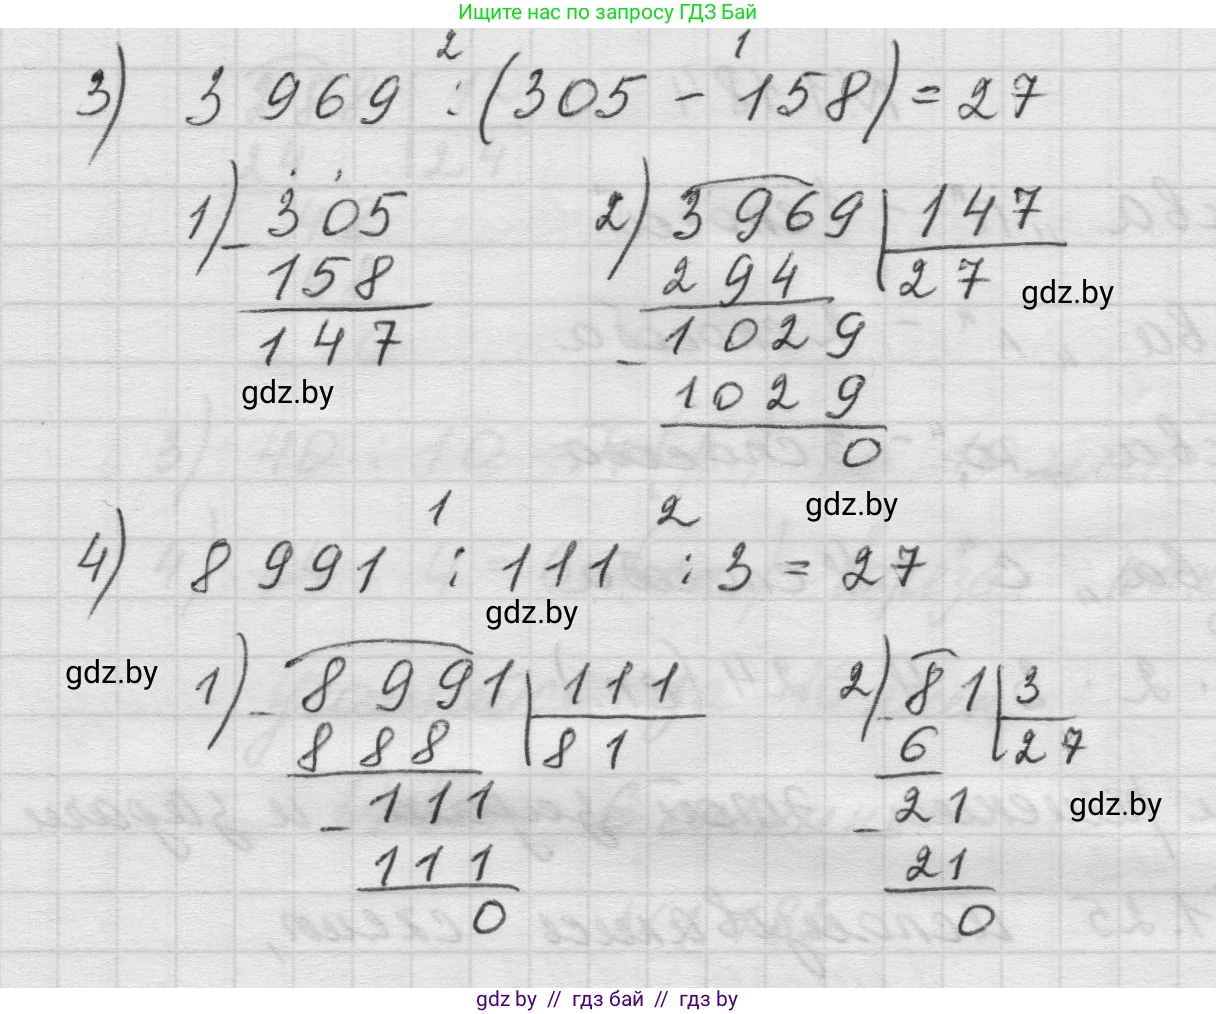 Ищите нас по запросу ГДЗ Бай
2 1
3) 3969 : (305 - 158) = 27
1) - 305 2) 3969 | 147
158 294 27
gdz.by
147 - 1029
gdz.by 1029
0
gdz.by
1 2
4) 8991 : 111 : 3 = 27
gdz.by
gdz.by
1) - 8991 | 111 2) - 81 | 3
888 81 6 27
- 111 - 21
gdz.by
111 21
0 0
gdz by // гдз бай // гдз by